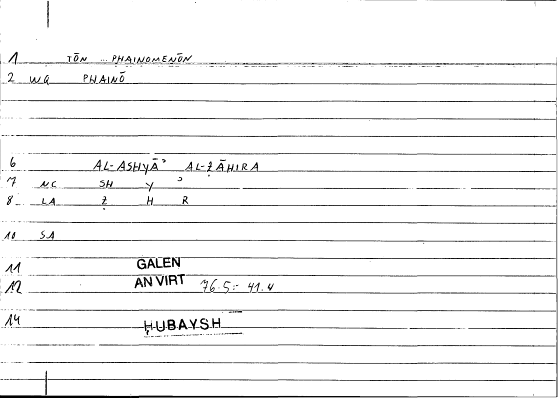 1 TŌN ... PHAINOMENŌN
2 WG PHAINŌ
6 AL-ASHYĀʾ AL-ẒĀHIRA
7 NC SH Y ʾ
8 LA Ẓ H R
10 SA
11 GALEN
12 AN VIRT 76.5 :- 41.4
14 ḤUBAYSH